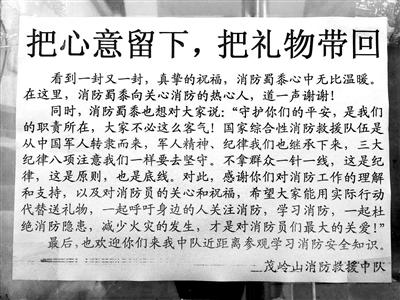 把心意留下，把礼物带回
看到一封又一封，真挚的祝福，消防蜀黍心中无比温暖。
在这里，消防蜀黍向关心消防的热心人，道一声谢谢！
同时，消防蜀黍也想对大家说：“守护你们的平安，是我们
的职责所在，大家不必这么客气！国家综合性消防救援队伍是
从中国军人转隶而来，军人精神、纪律我们也继承下来，三大
纪律八项注意我们一样要去坚守。不拿群众一针一线，这是纪
律，这是原则，也是底线。对此，感谢你们对消防工作的理解
和支持，以及对消防员的关心和祝福，希望大家能用实际行动
代替送礼物，一起呼吁身边的人关注消防，学习消防，一起杜
绝消防隐患，减少火灾的发生，才是对消防员们最大的关爱！”
最后，也欢迎你们来我中队近距离参观学习消防安全知识。
茂岭山消防救援中队